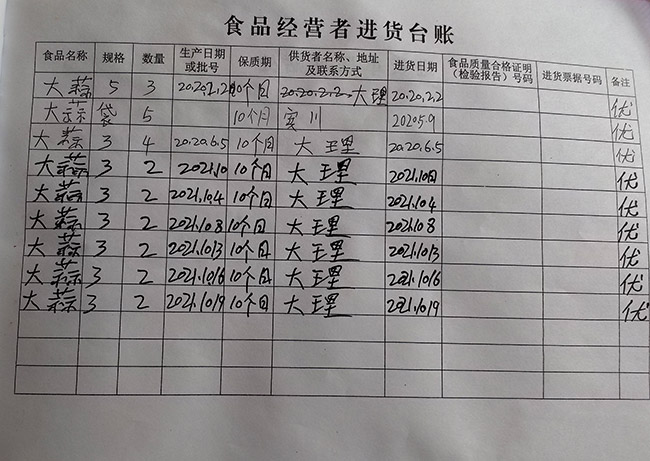 食品经营者进货台账
食品名称 规格 数量 生产日期或批号 保质期 供货者名称、地址及联系方式 进货日期 食品质量合格证明（检验报告）号码 进货票据号码 备注
大蒜 5 3 10个月 大理 20.20.2.2 优
大蒜 袋 5 10个月 宾川 2020.5.9 优
大蒜 3 4 20.20.6.5 10个月 大理 20.20.6.5 优
大蒜 3 2 2021.10 10个月 大理 2021.10日 优
大蒜 3 2 2021.10.4 10个月 大理 2021.10.4 优
大蒜 3 2 2021.10.8 10个月 大理 2021.10.8 优
大蒜 3 2 2021.10.13 10个月 大理 2021.10.13 优
大蒜 3 2 2021.10.16 10个月 大理 2021.10.16 优
大蒜 3 2 2021.10.19 10个月 大理 2021.10.19 优